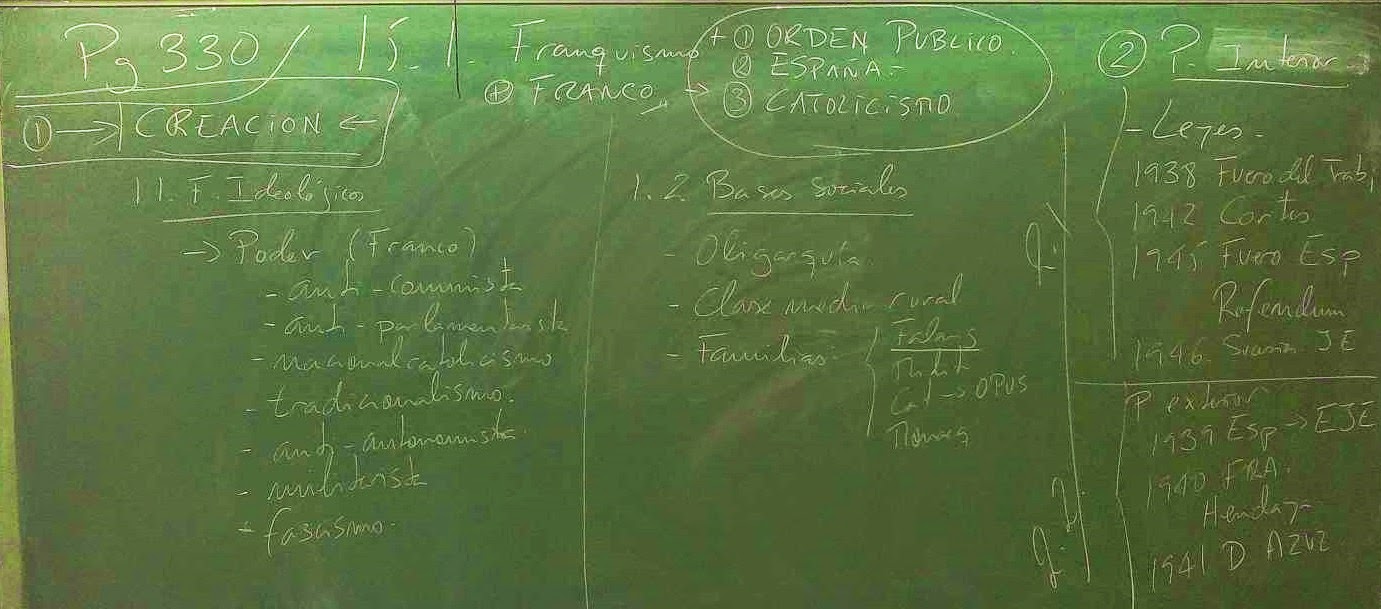 Pg 330/ 15.1. Franquismo
+ ① ORDEN PUBLICO.
② ESPAÑA.-
⊕ FRANCO → ③ CATOLICISMO
① → CREACION ←
1.1. F. Ideológicos
→ Poder (Franco)
- anti-comunista
- anti-parlamentarista
- nacionalcatolicismo
- tradicionalismo.
- anti-autonomista
- militarista
+ fascismo.
1.2. Bases Sociales
- Oligarquía.
- Clase media rural
- Familias:
Falang
Milit
Cat → OPUS
Monarq
② P. Interior
- Leyes-
1938 Fuero del Trabj
1942 Cortes
1945 Fuero Esp
Referendum
1946. JE
P exterior
1939 Esp → EJE
1940 FRA.
Hendaya
1941 D AZUZ